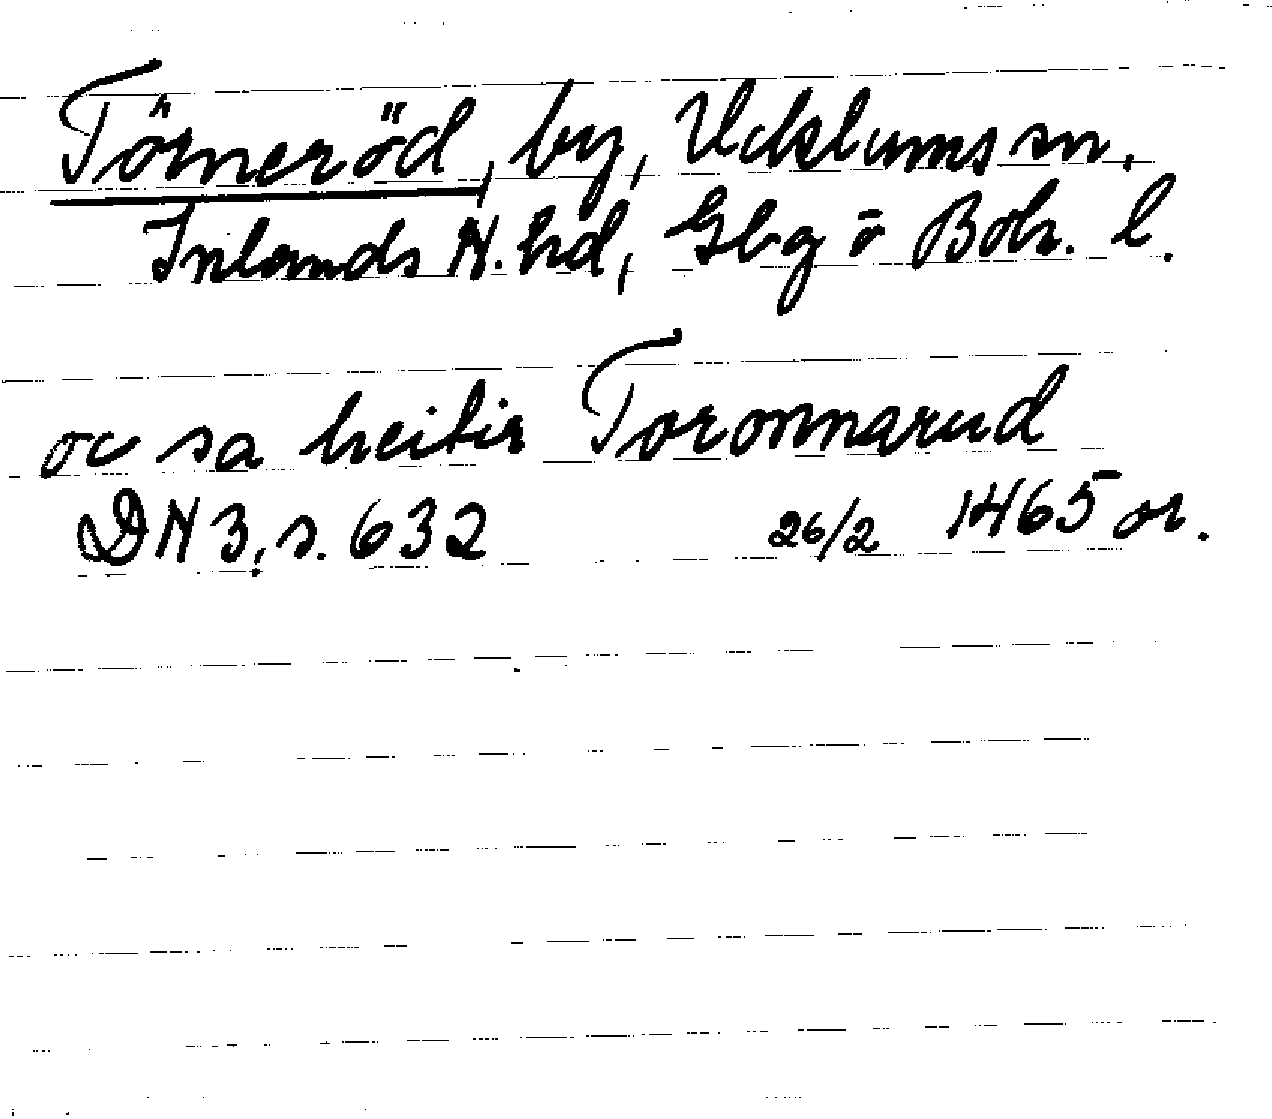 Törneröd, by, Ucklums sn,
Inlands N. hd, Gbg o Boh. l.
oc sa heitir Toronnarud
DN 3, s. 632 26/2 1465 or.